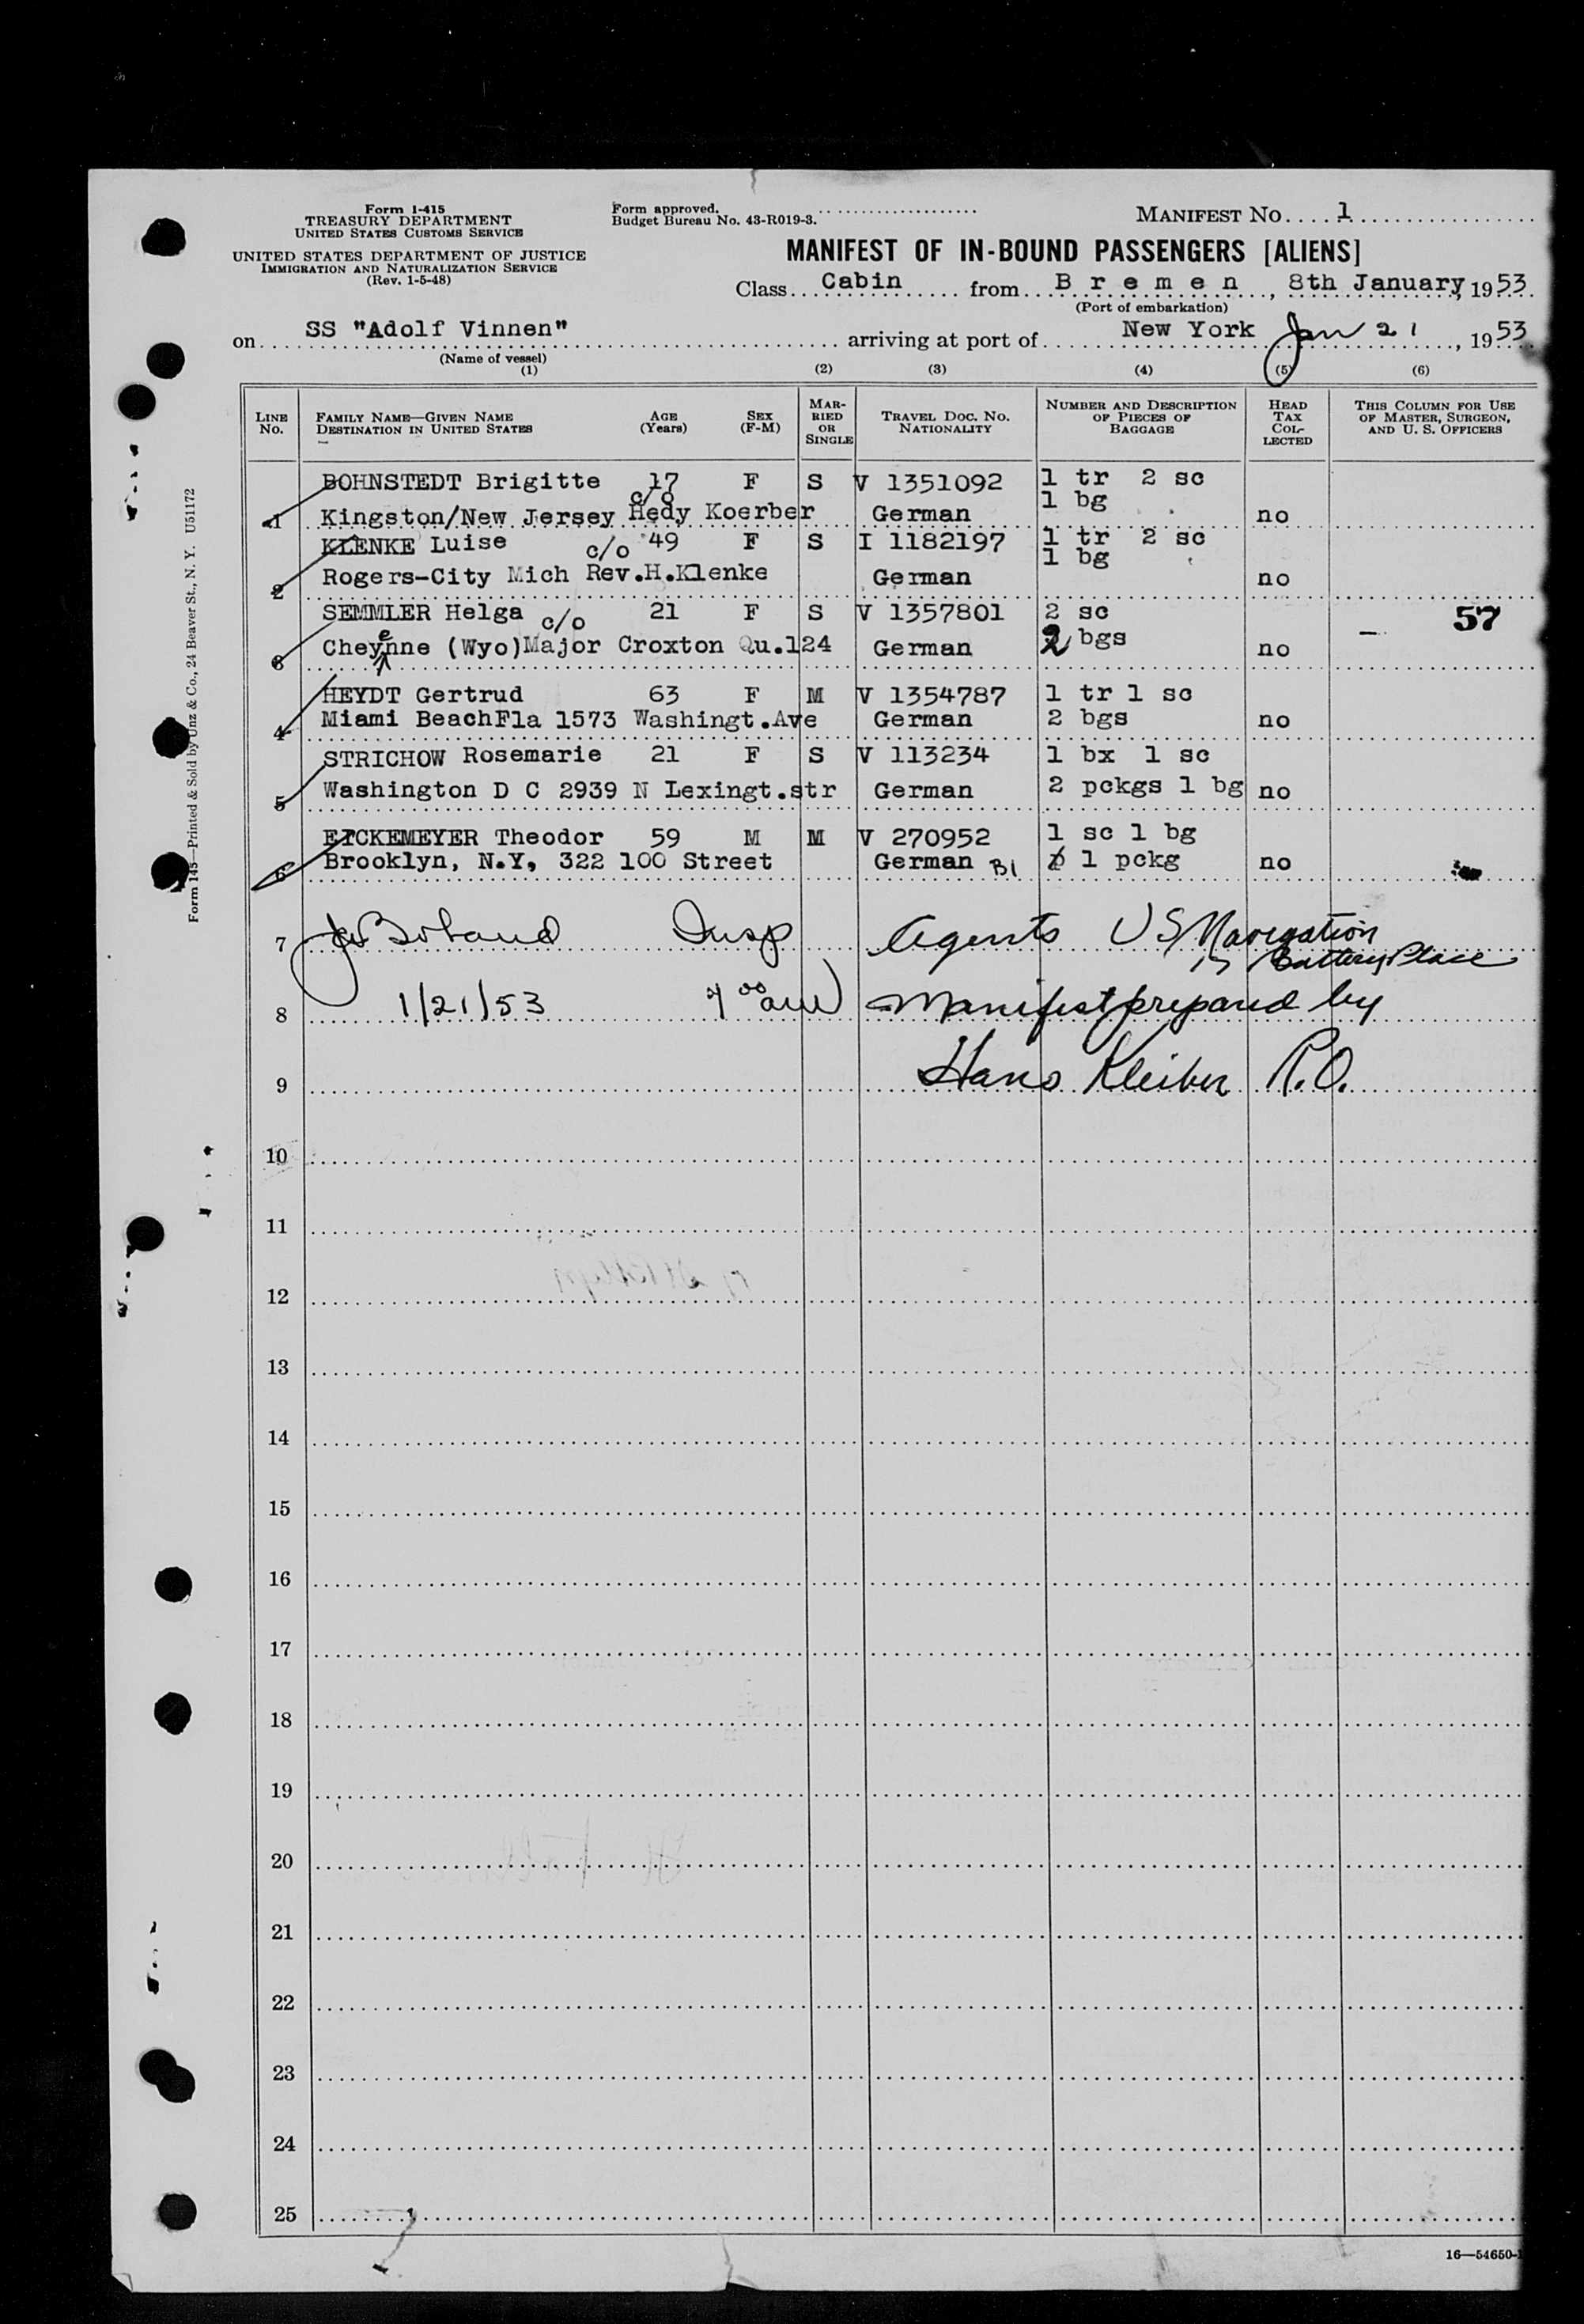 Form I-415
TREASURY DEPARTMENT
UNITED STATES CUSTOMS SERVICE
UNITED STATES DEPARTMENT OF JUSTICE
IMMIGRATION AND NATURALIZATION SERVICE
(Rev. 1-5-48)
Form approved.
Budget Bureau No. 43-R019-3.
MANIFEST NO....1
MANIFEST OF IN-BOUND PASSENGERS [ALIENS]
Class Cabin from B r e m e n, 8th January, 1953.
(Port of embarkation)
on SS "Adolf Vinnen" arriving at port of New York Jan 21, 1953
(Name of vessel)
(1) (2) (3) (4) (5) (6)
LINE No. FAMILY NAME—GIVEN NAME DESTINATION IN UNITED STATES AGE (Years) SEX (F-M) MARRIED OR SINGLE TRAVEL DOC. NO. NATIONALITY NUMBER AND DESCRIPTION OF PIECES OF BAGGAGE HEAD TAX COLLECTED THIS COLUMN FOR USE OF MASTER, SURGEON, AND U. S. OFFICERS
BOHNSTEDT Brigitte 17 F S V 1351092 1 tr 2 sc
c/o 1 bg
1 Kingston/New Jersey Hedy Koerber German no
KLENKE Luise c/o 49 F S I 1182197 1 tr 2 sc
1 bg
2 Rogers-City Mich Rev.H.Klenke German no
SEMMLER Helga c/o 21 F S V 1357801 2 sc 57
3 Cheyenne (Wyo)Major Croxton Qu.124 German 2 bgs no
HEYDT Gertrud 63 F M V 1354787 1 tr 1 sc
4 Miami BeachFla 1573 Washingt.Ave German 2 bgs no
STRICHOW Rosemarie 21 F S V 113234 1 bx 1 sc
5 Washington D C 2939 N Lexingt.str German 2 pckgs 1 bg no
EICKEMEYER Theodor 59 M M V 270952 1 sc 1 bg
6 Brooklyn, N.Y, 322 100 Street German B1 1 pckg no
7 Boland Insp Agents US Navigation
17 Battery Place
8 1/21/53 9 00 am Manifest prepared by
9 Hans Kleiber R.O.
10
11
12
13
14
15
16
17
18
19
20
21
22
23
24
25
16—54650-1
Form 145—Printed & Sold by Unz & Co., 24 Beaver St., N. Y. U51172